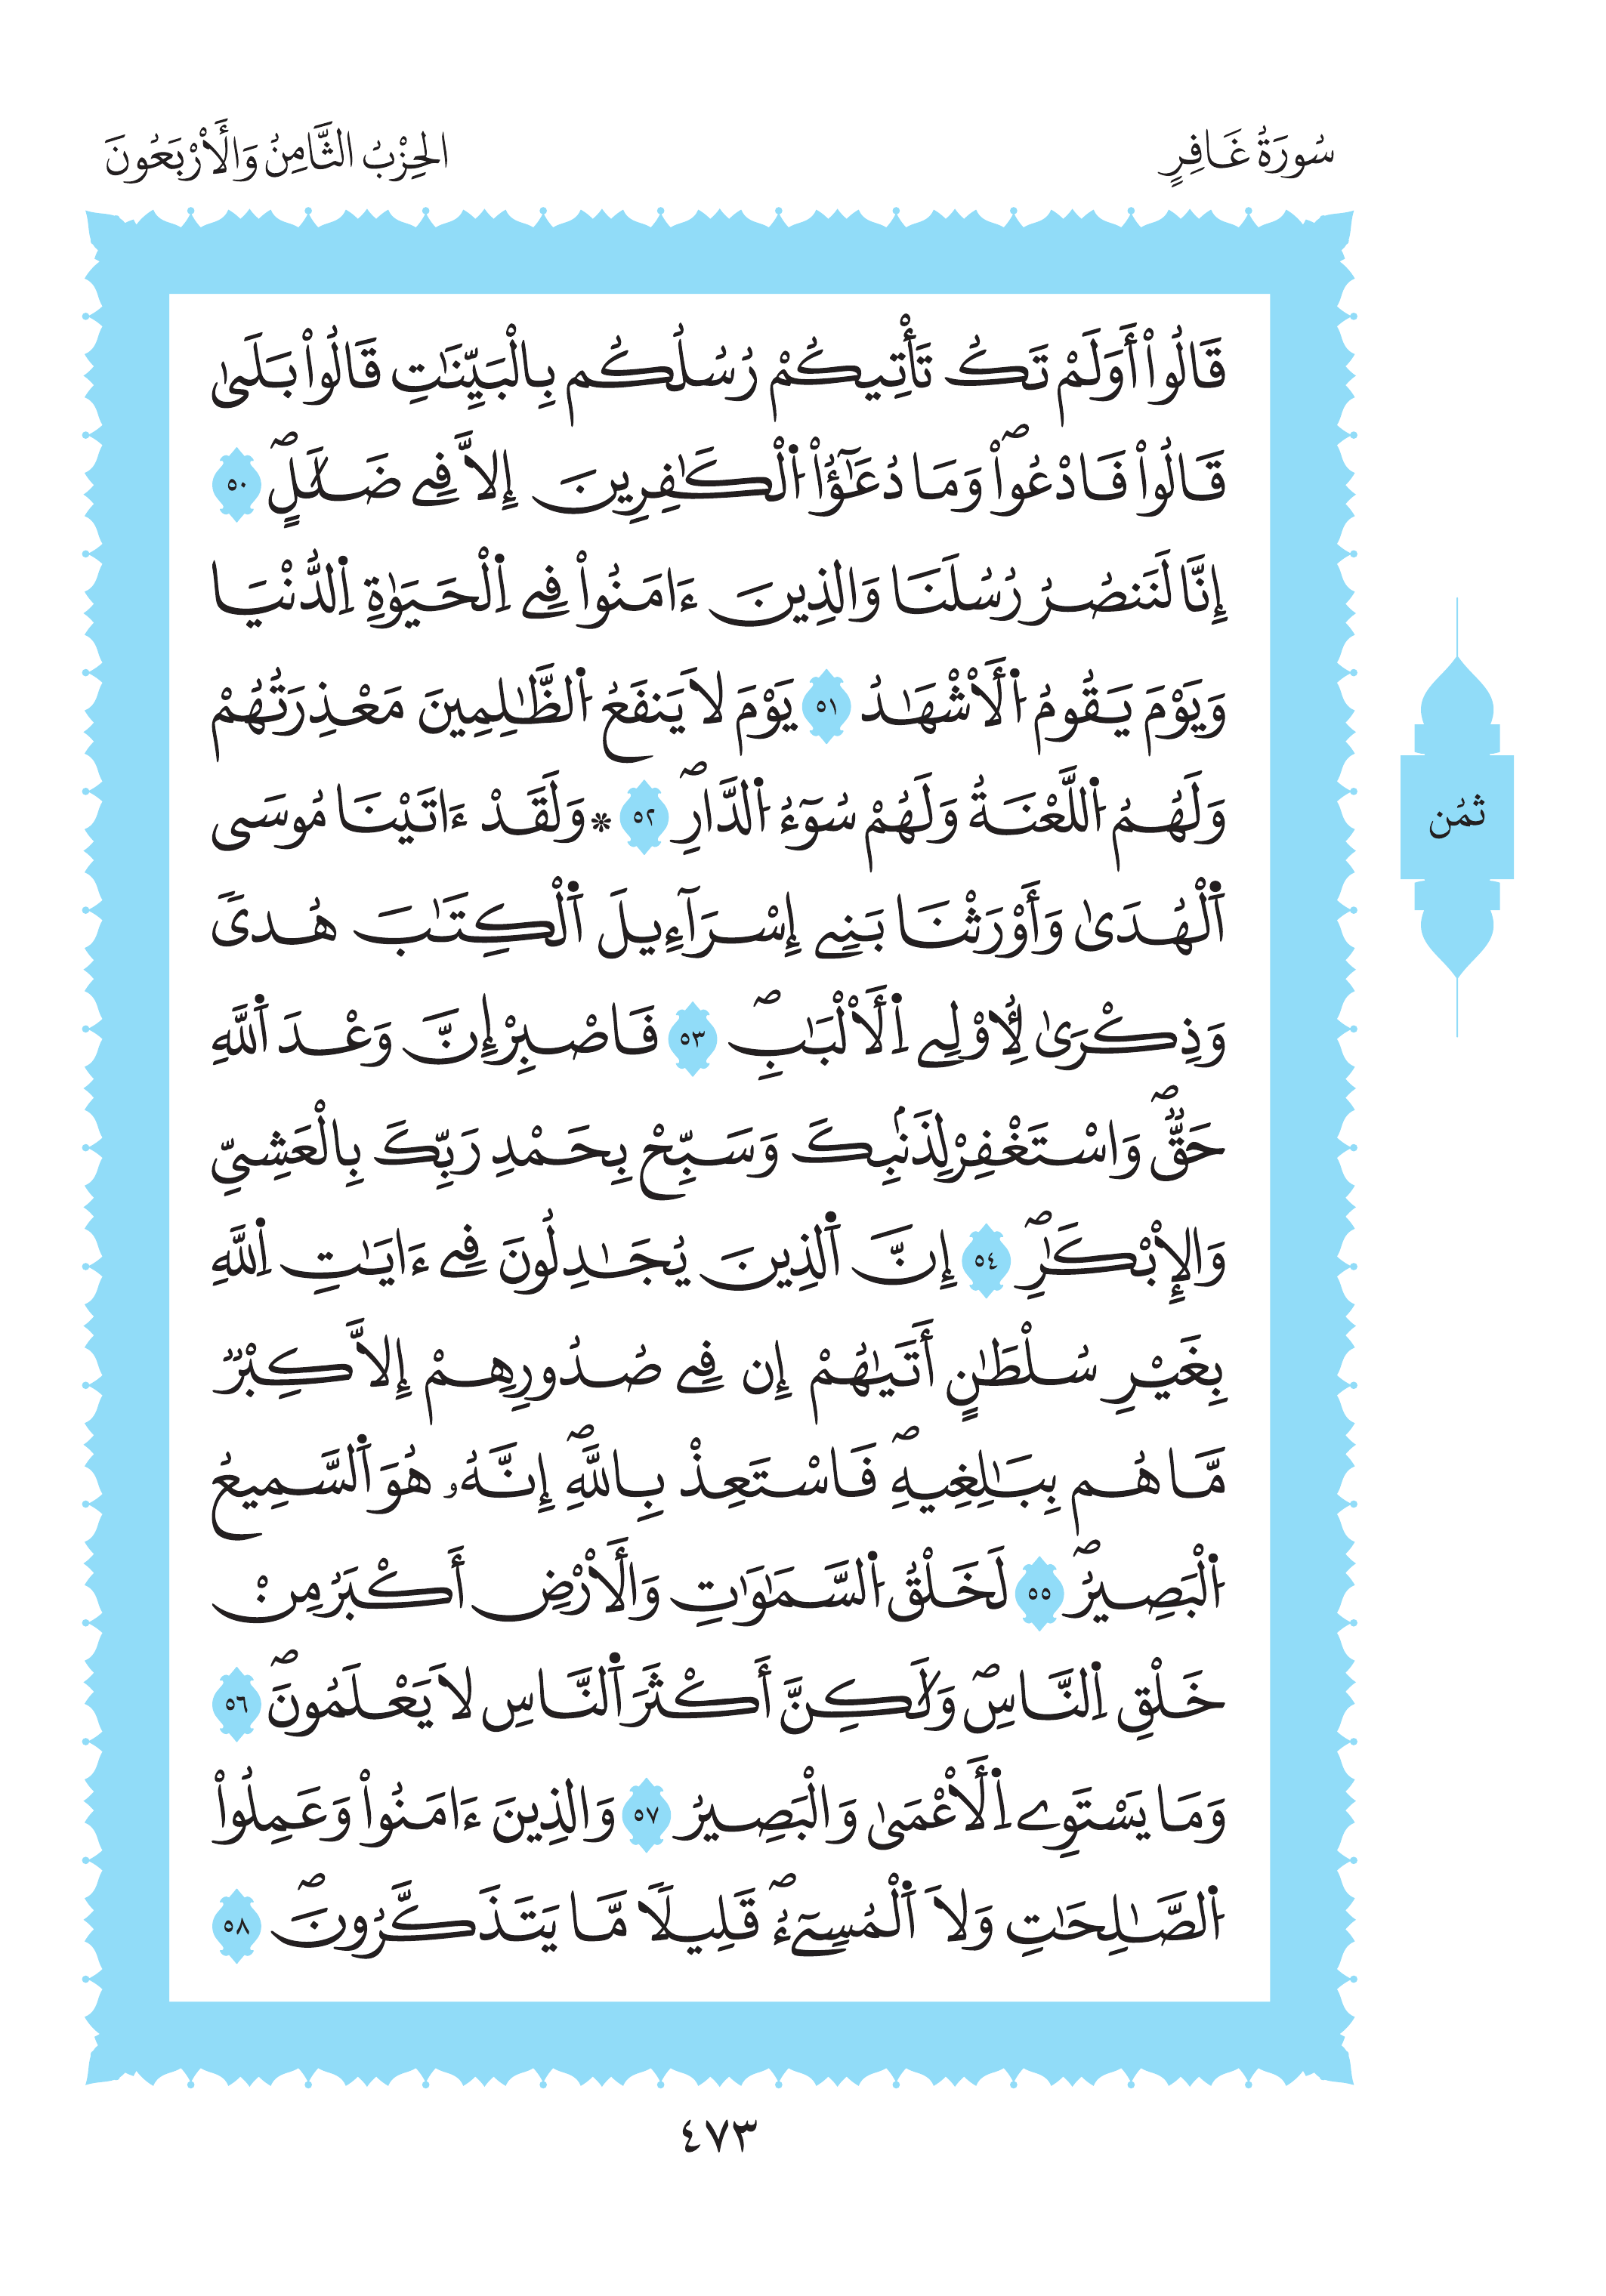 سُورَةُ غَافِرٍ
الحِزْبُ الثَّامِنُ وَالْأَرْبَعُونَ
قَالُوٓاْ أَوَلَمْ تَكُ تَأْتِيكُمْ رُسُلُكُم بِالْبَيِّنَٰتِ قَالُواْ بَلَىٰ
قَالُواْ فَادْعُواْۖ وَمَا دُعَٰٓؤُاْ اُ۬لْكَٰفِرِينَ إِلَّا فِے ضَلَٰلٍۖ ٥٠
إِنَّا لَنَنصُرُ رُسُلَنَا وَالذِينَ ءَامَنُواْ فِے اِ۬لْحَيَوٰةِ اِ۬لدُّنْيَا
وَيَوْمَ يَقُومُ اُ۬لْأَشْهَٰدُ ٥١ يَوْمَ لَا يَنفَعُ اُ۬لظَّٰلِمِينَ مَعْذِرَتُهُمْ
وَلَهُمُ اُ۬للَّعْنَةُ وَلَهُمْ سُوٓءُ اُ۬لدَّارِۖ ٥٢ * وَلَقَدْ ءَاتَيْنَا مُوسَى
اَ۬لْهُدَىٰ وَأَوْرَثْنَا بَنِے إِسْرَآءِيلَ اَ۬لْكِتَٰبَ هُدىٗ
وَذِكْرَىٰ لِأُوْلِے اِ۬لْأَلْبَٰبِۖ ٥٣ فَاصْبِرْ إِنَّ وَعْدَ اَ۬للَّهِ
حَقّٞۖ وَاسْتَغْفِرْ لِذَنۢبِكَ وَسَبِّحْ بِحَمْدِ رَبِّكَ بِالْعَشِيِّ
وَالْإِبْكَٰرِۖ ٥٤ إِنَّ اَ۬لذِينَ يُجَٰدِلُونَ فِے ءَايَٰتِ اِ۬للَّهِ
بِغَيْرِ سُلْطَٰنٍ أَتَيٰهُمْ إِن فِے صُدُورِهِمْ إِلَّا كِبْرٞ
مَّا هُم بِبَٰلِغِيهِۖ فَاسْتَعِذْ بِاللَّهِۖ إِنَّهُۥ هُوَ اَ۬لسَّمِيعُ
اُ۬لْبَصِيرُۖ ٥٥ لَخَلْقُ اُ۬لسَّمَٰوَٰتِ وَالْأَرْضِ أَكْبَرُ مِنْ
خَلْقِ اِ۬لنَّاسِۖ وَلَٰكِنَّ أَكْثَرَ اَ۬لنَّاسِ لَا يَعْلَمُونَۖ ٥٦
وَمَا يَسْتَوِے اِ۬لْأَعْمَىٰ وَالْبَصِيرُ ٥٧ وَالذِينَ ءَامَنُواْ وَعَمِلُواْ
اُ۬لصَّٰلِحَٰتِ وَلَا اَ۬لْمُسِےٓءُۖ قَلِيلٗا مَّا يَتَذَكَّرُونَۖ ٥٨
ثمُن
٤٧٣